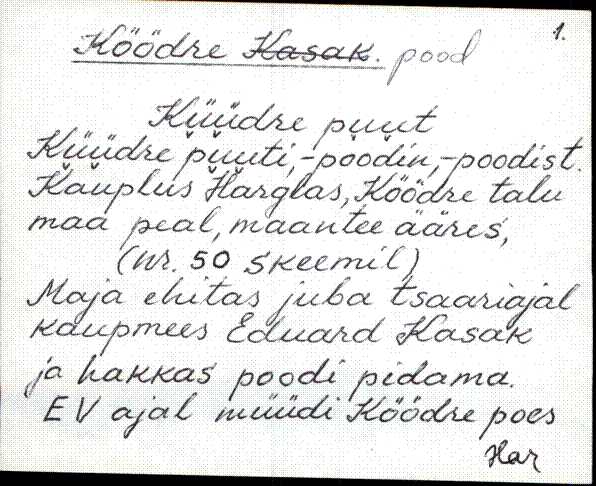 1.
Köödre Kasak. pood
Küüdre puut
Küüdre puuti, -poodin, -poodist.
Kauplus Harglas, Köödre talu
maa peal, maantee ääres,
(nr. 50 skeemil)
Maja ehitas juba tsaariajal
kaupmees Eduard Kasak
ja hakkas poodi pidama.
EV ajal müüdi Köödre poes
Har